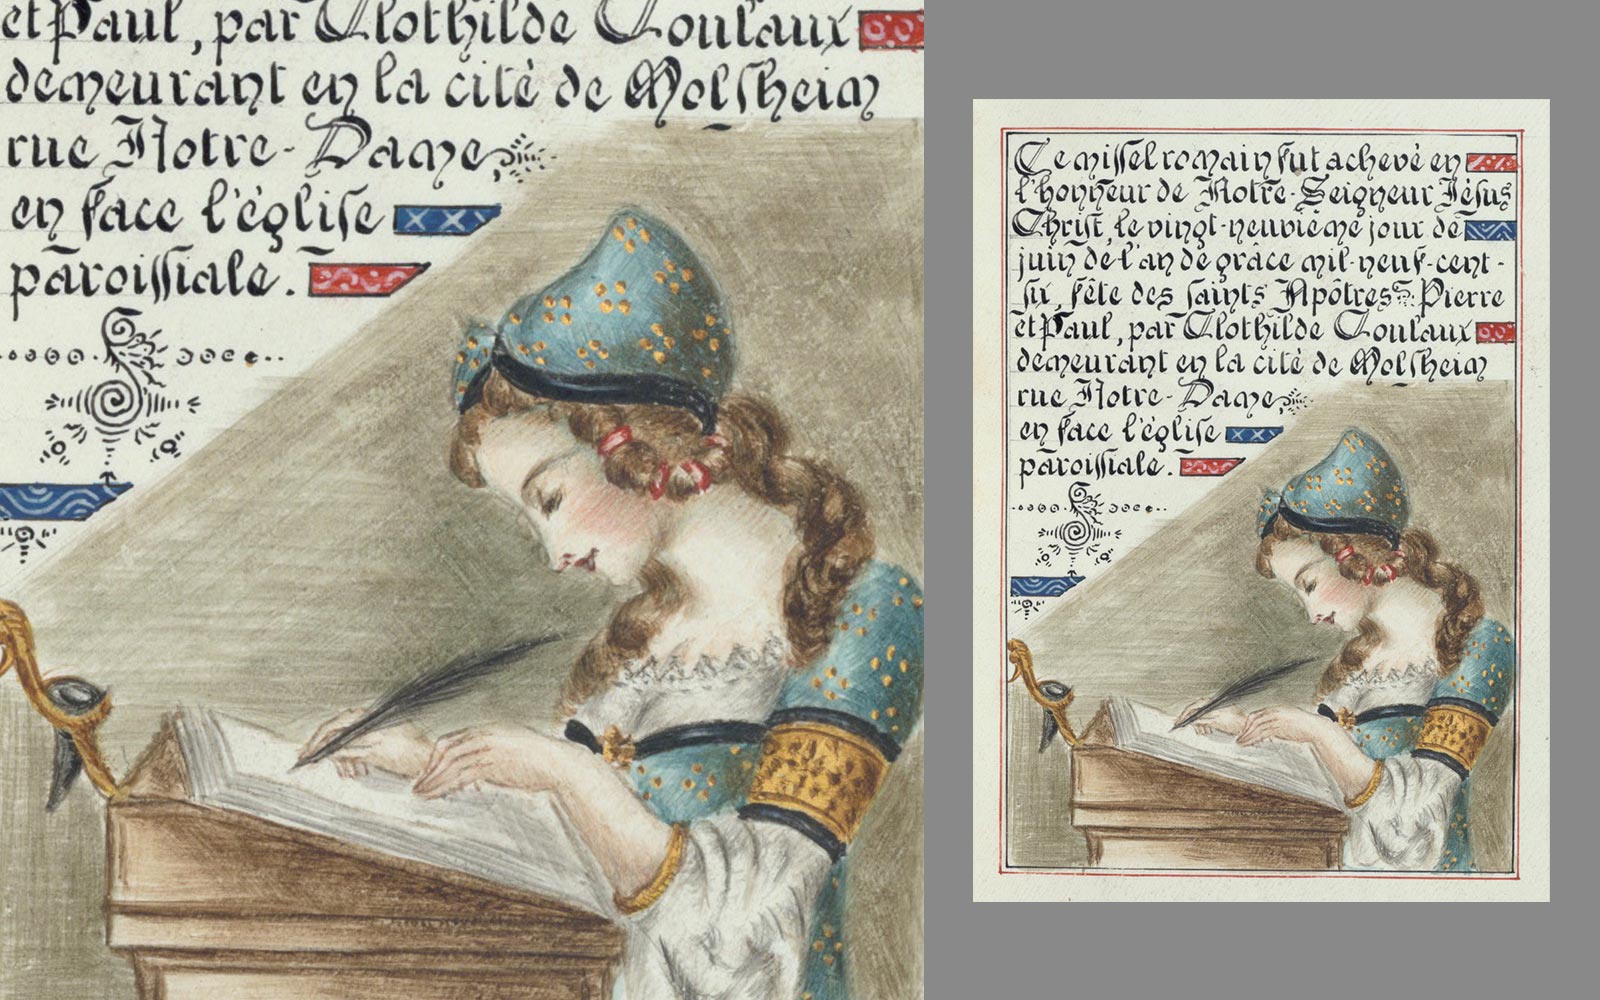 et Paul, par Clothilde Coulaux
demeurant en la cité de Molsheim
rue Notre-Dame
en face l'église
paroissiale.
Ce missel romain fut achevé en
l'honneur de Notre-Seigneur Jésus
Christ, le vingt-neuvième jour de
juin de l'an de grâce mil-neuf-cent-
six, fête des saints Apôtres Pierre
et Paul, par Clothilde Coulaux
demeurant en la cité de Molsheim
rue Notre-Dame,
en face l'église
paroissiale.